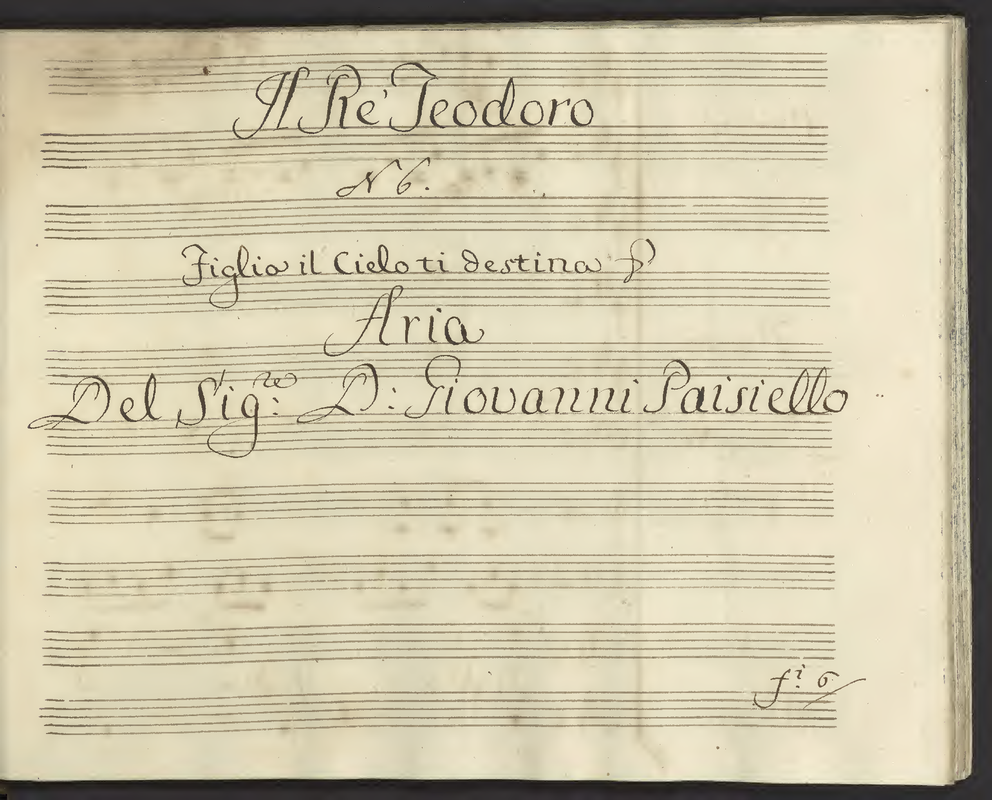 Il Rè Teodoro
N 6.
Figlia il Cielo ti destina
Aria
Del Sig:re D: Giovanni Paisiello
f.i 6